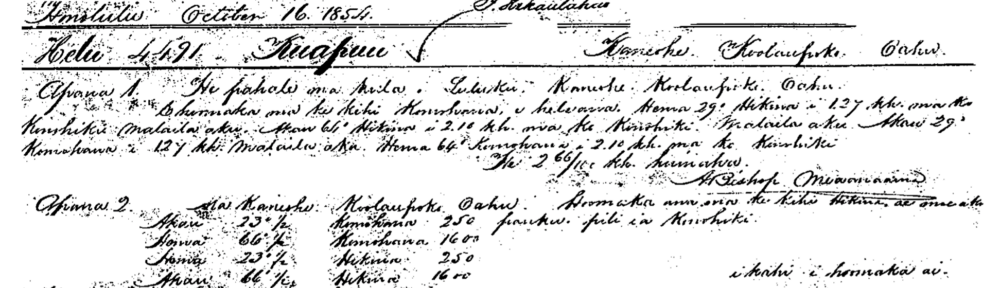 Honolulu October 16. 1854.
Helu 4491. Kuapuu Kaneohe Koolaupoko Oahu.
Apana 1. He pahale ma kula i Luluku. Kaneohe. Koolaupoko. Oahu.
E hoomaka ma ke kihi Komohana, e hele ana. Hema 29° Hikina i 1.27 kh. ma ko
Konohiki malaila aku. Akau 64° Hikina i 2.10 kh. ma ko Konohiki. Malaila aku. Akau 29°
Komohana i 1.27 kh. Malaila aku. Hema 64° Komohana i 2.10 kh. ma ko Konohiki
He 2 66/100 kh. kuimaha.
A Bishop
Apana 2. ma Kaneohe. Koolaupoko Oahu. Hoomaka ana ma ke kihi Hikina, ae
Akau 23° ½ Komohana 250 pauku. pili i ka Konohiki.
Hema 66° ½ Komohana 1600
Hema 23° ½ Hikina 250
Akau 66° ½ Hikina 1600 i kahi i hoomaka ai.